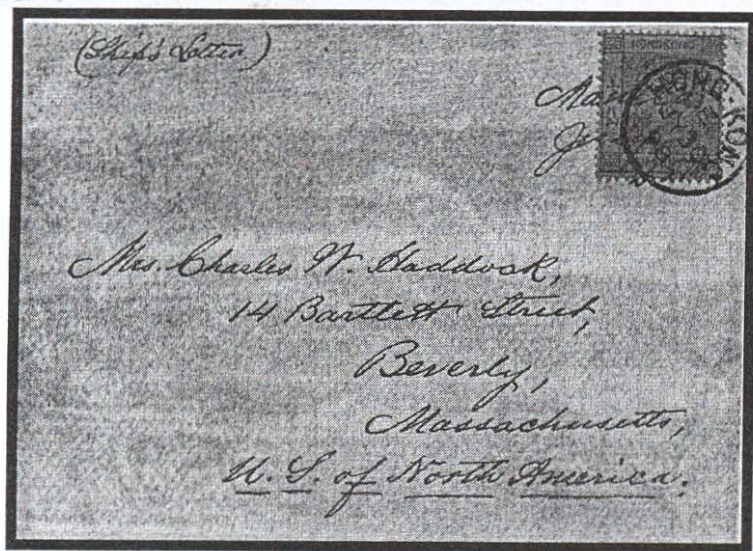 (Ship's Letter)
HONG KONG
HONG-KON
Mrs. Charles W. Haddock,
14 Bartlett Street,
Beverly,
Massachusetts,
U. S. of North America.